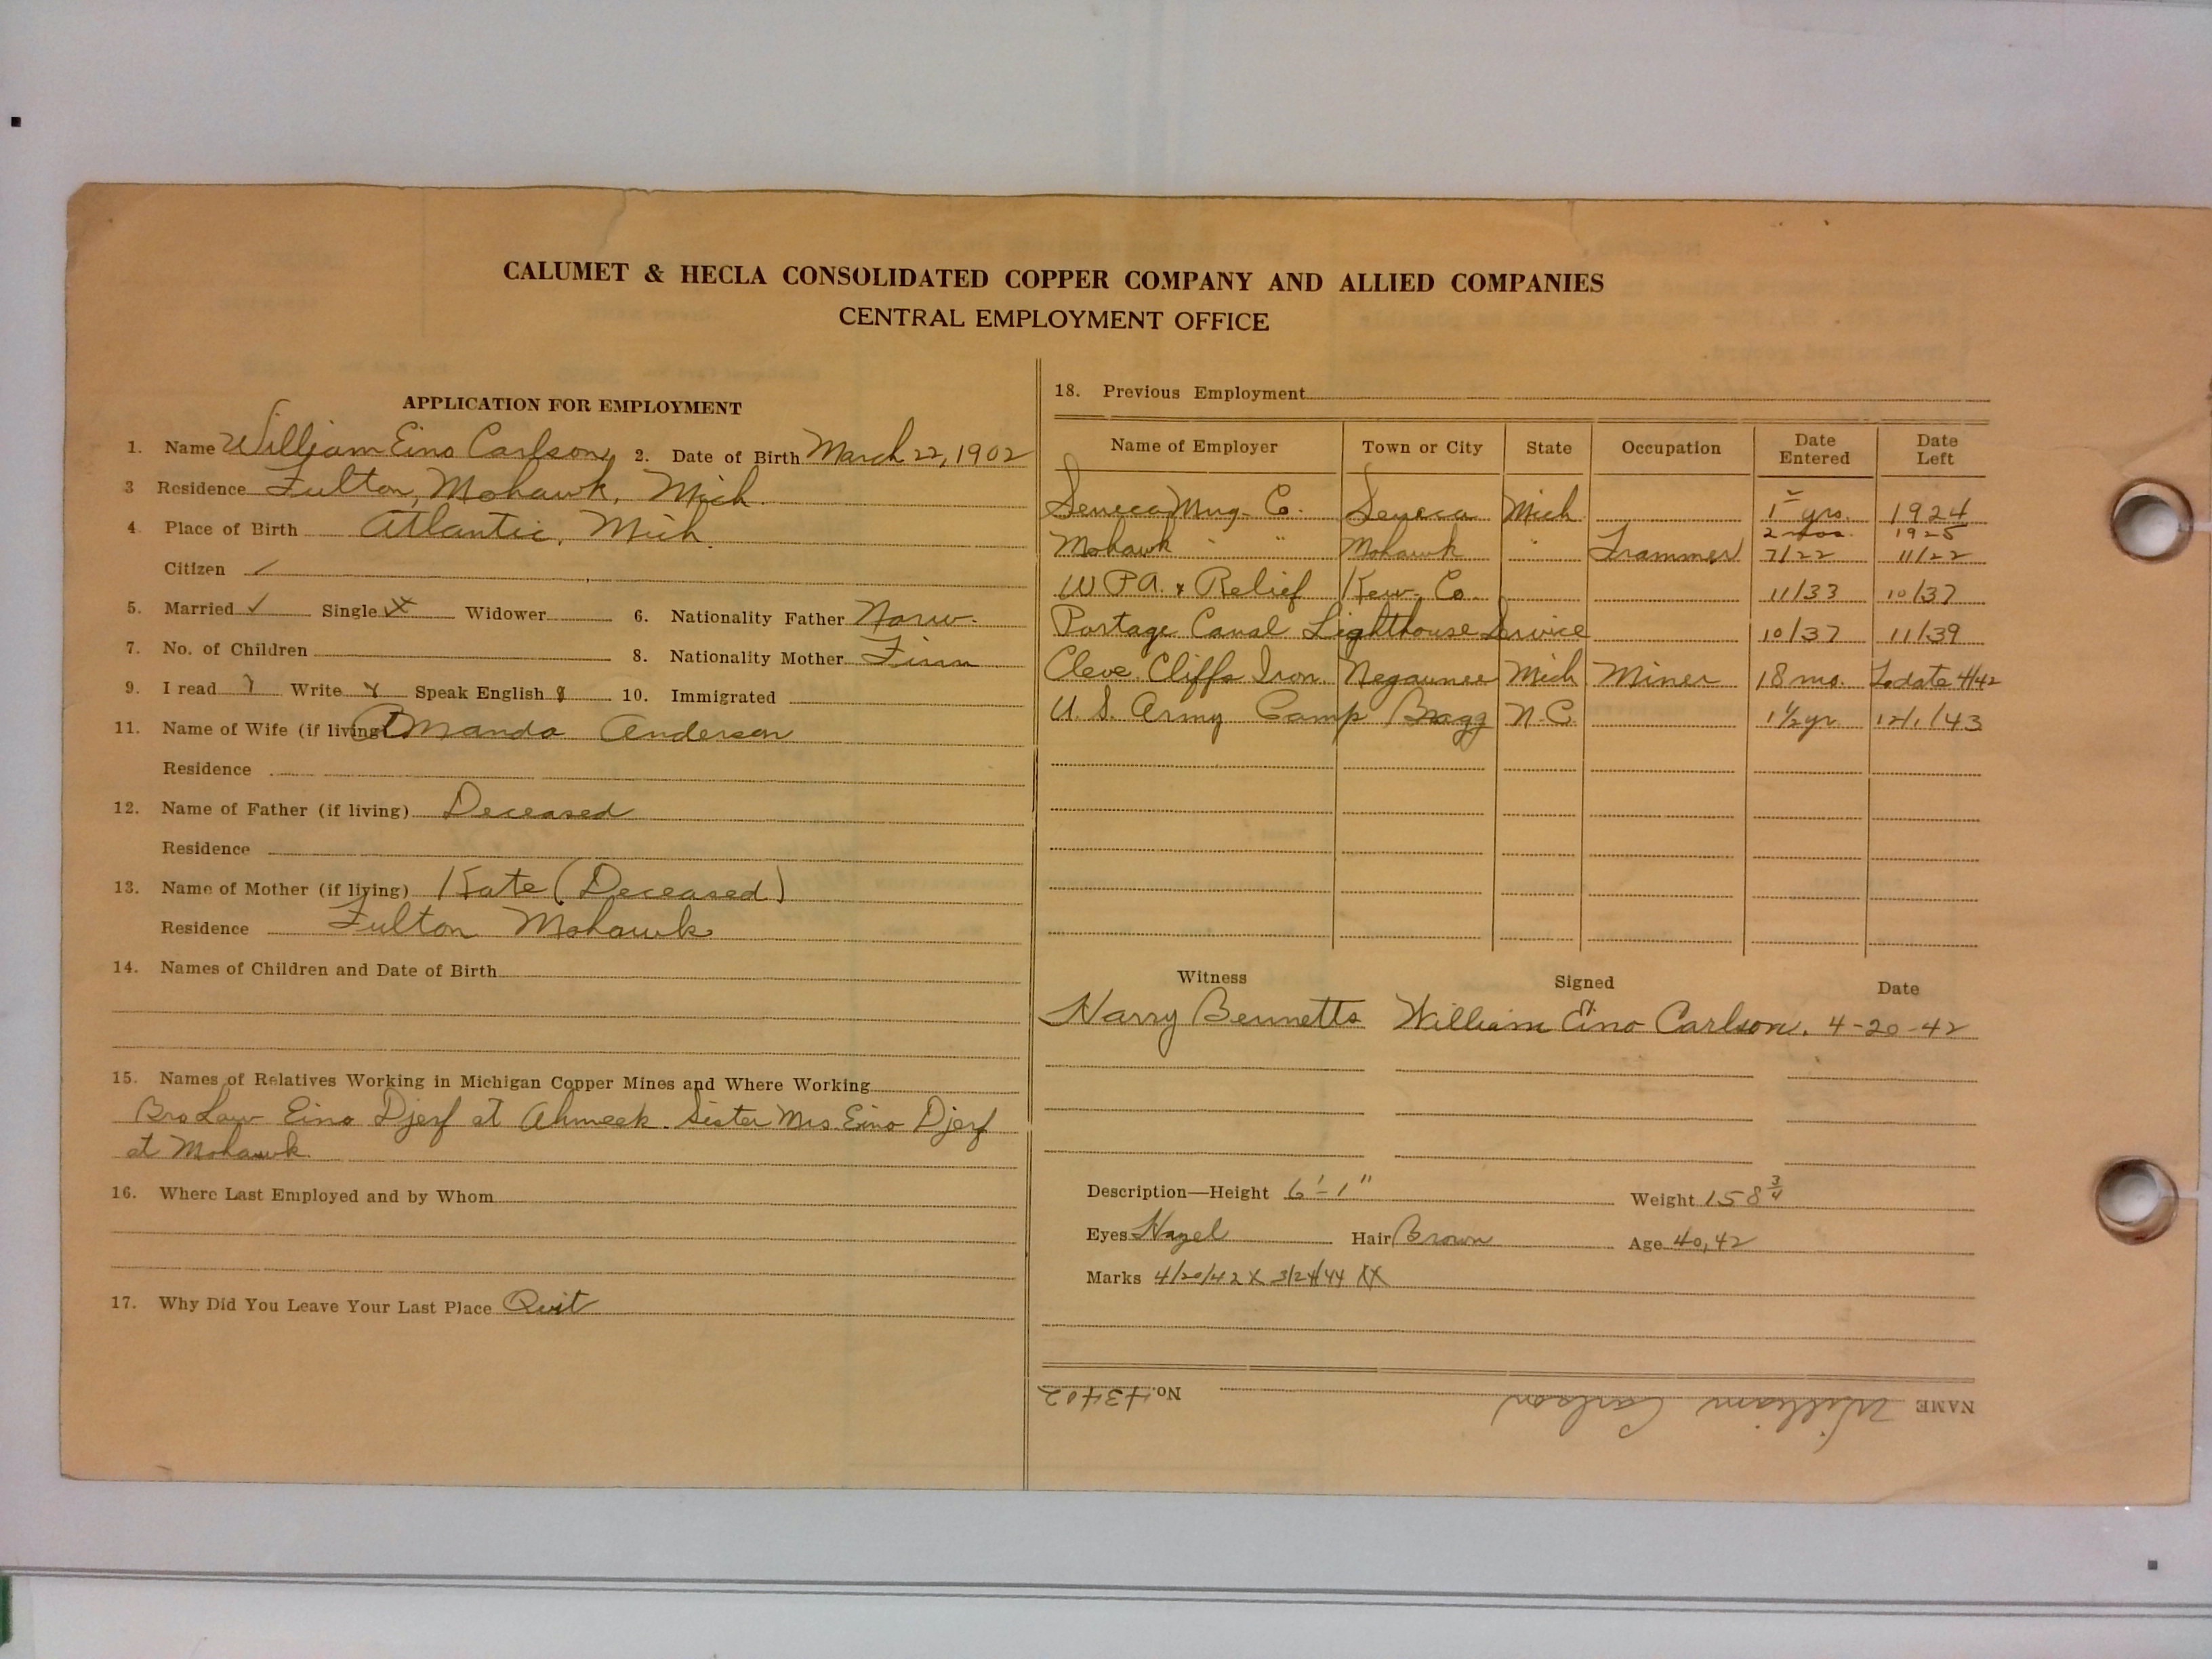 CALUMET & HECLA CONSOLIDATED COPPER COMPANY AND ALLIED COMPANIES
CENTRAL EMPLOYMENT OFFICE
APPLICATION FOR EMPLOYMENT
1. Name William Eino Carlson 2. Date of Birth March 22, 1902
3 Residence Fulton, Mohawk, Mich.
4 Place of Birth Atlantic, Mich.
Citizen ✓
5. Married ✓ Single X Widower 6. Nationality Father Norw.
7. No. of Children 8. Nationality Mother Finn
9. I read Y Write Y Speak English Y 10. Immigrated
11. Name of Wife (if living) Amanda Anderson
Residence
12. Name of Father (if living) Deceased
Residence
13. Name of Mother (if living) Kate (Deceased)
Residence Fulton Mohawk
14. Names of Children and Date of Birth
15. Names of Relatives Working in Michigan Copper Mines and Where Working
Bro Law Eino Djerf at Ahmeek. Sister Mrs. Eino Djerf
at Mohawk.
16. Where Last Employed and by Whom
17. Why Did You Leave Your Last Place Quit
18. Previous Employment
Name of Employer Town or City State Occupation Date Entered Date Left
Seneca Mng. Co. Seneca Mich 1 yrs. 1924
2 mos. 1925
Mohawk " " Mohawk " Trammer 7/22 11/22
W P A. & Relief Kew. Co. 11/33 10/37
Portage Canal Lighthouse Service 10/37 11/39
Cleve Cliffs Iron Negaunee Mich Miner 18 mo. To date 4/42
U. S. Army Camp Bragg N.C. 1 1/2 yr 12/1/43
Witness Signed Date
Harry Bennetts William Eino Carlson. 4-20-42
Description—Height 6'-1" Weight 158 3/4
Eyes Hazel Hair Brown Age 40, 42
Marks 4/20/42 X 3/24/44 XX
NAME William Carlson No. 43402